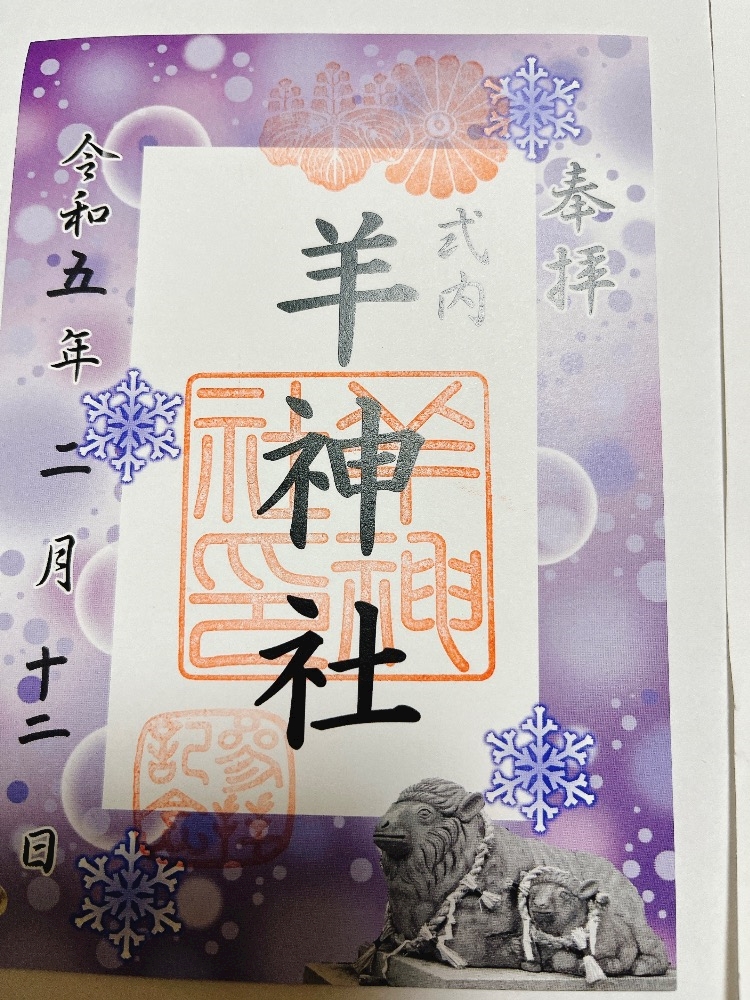 奉拝
式内
羊神社
羊神社印
参拝記念
令和五年二月十二日